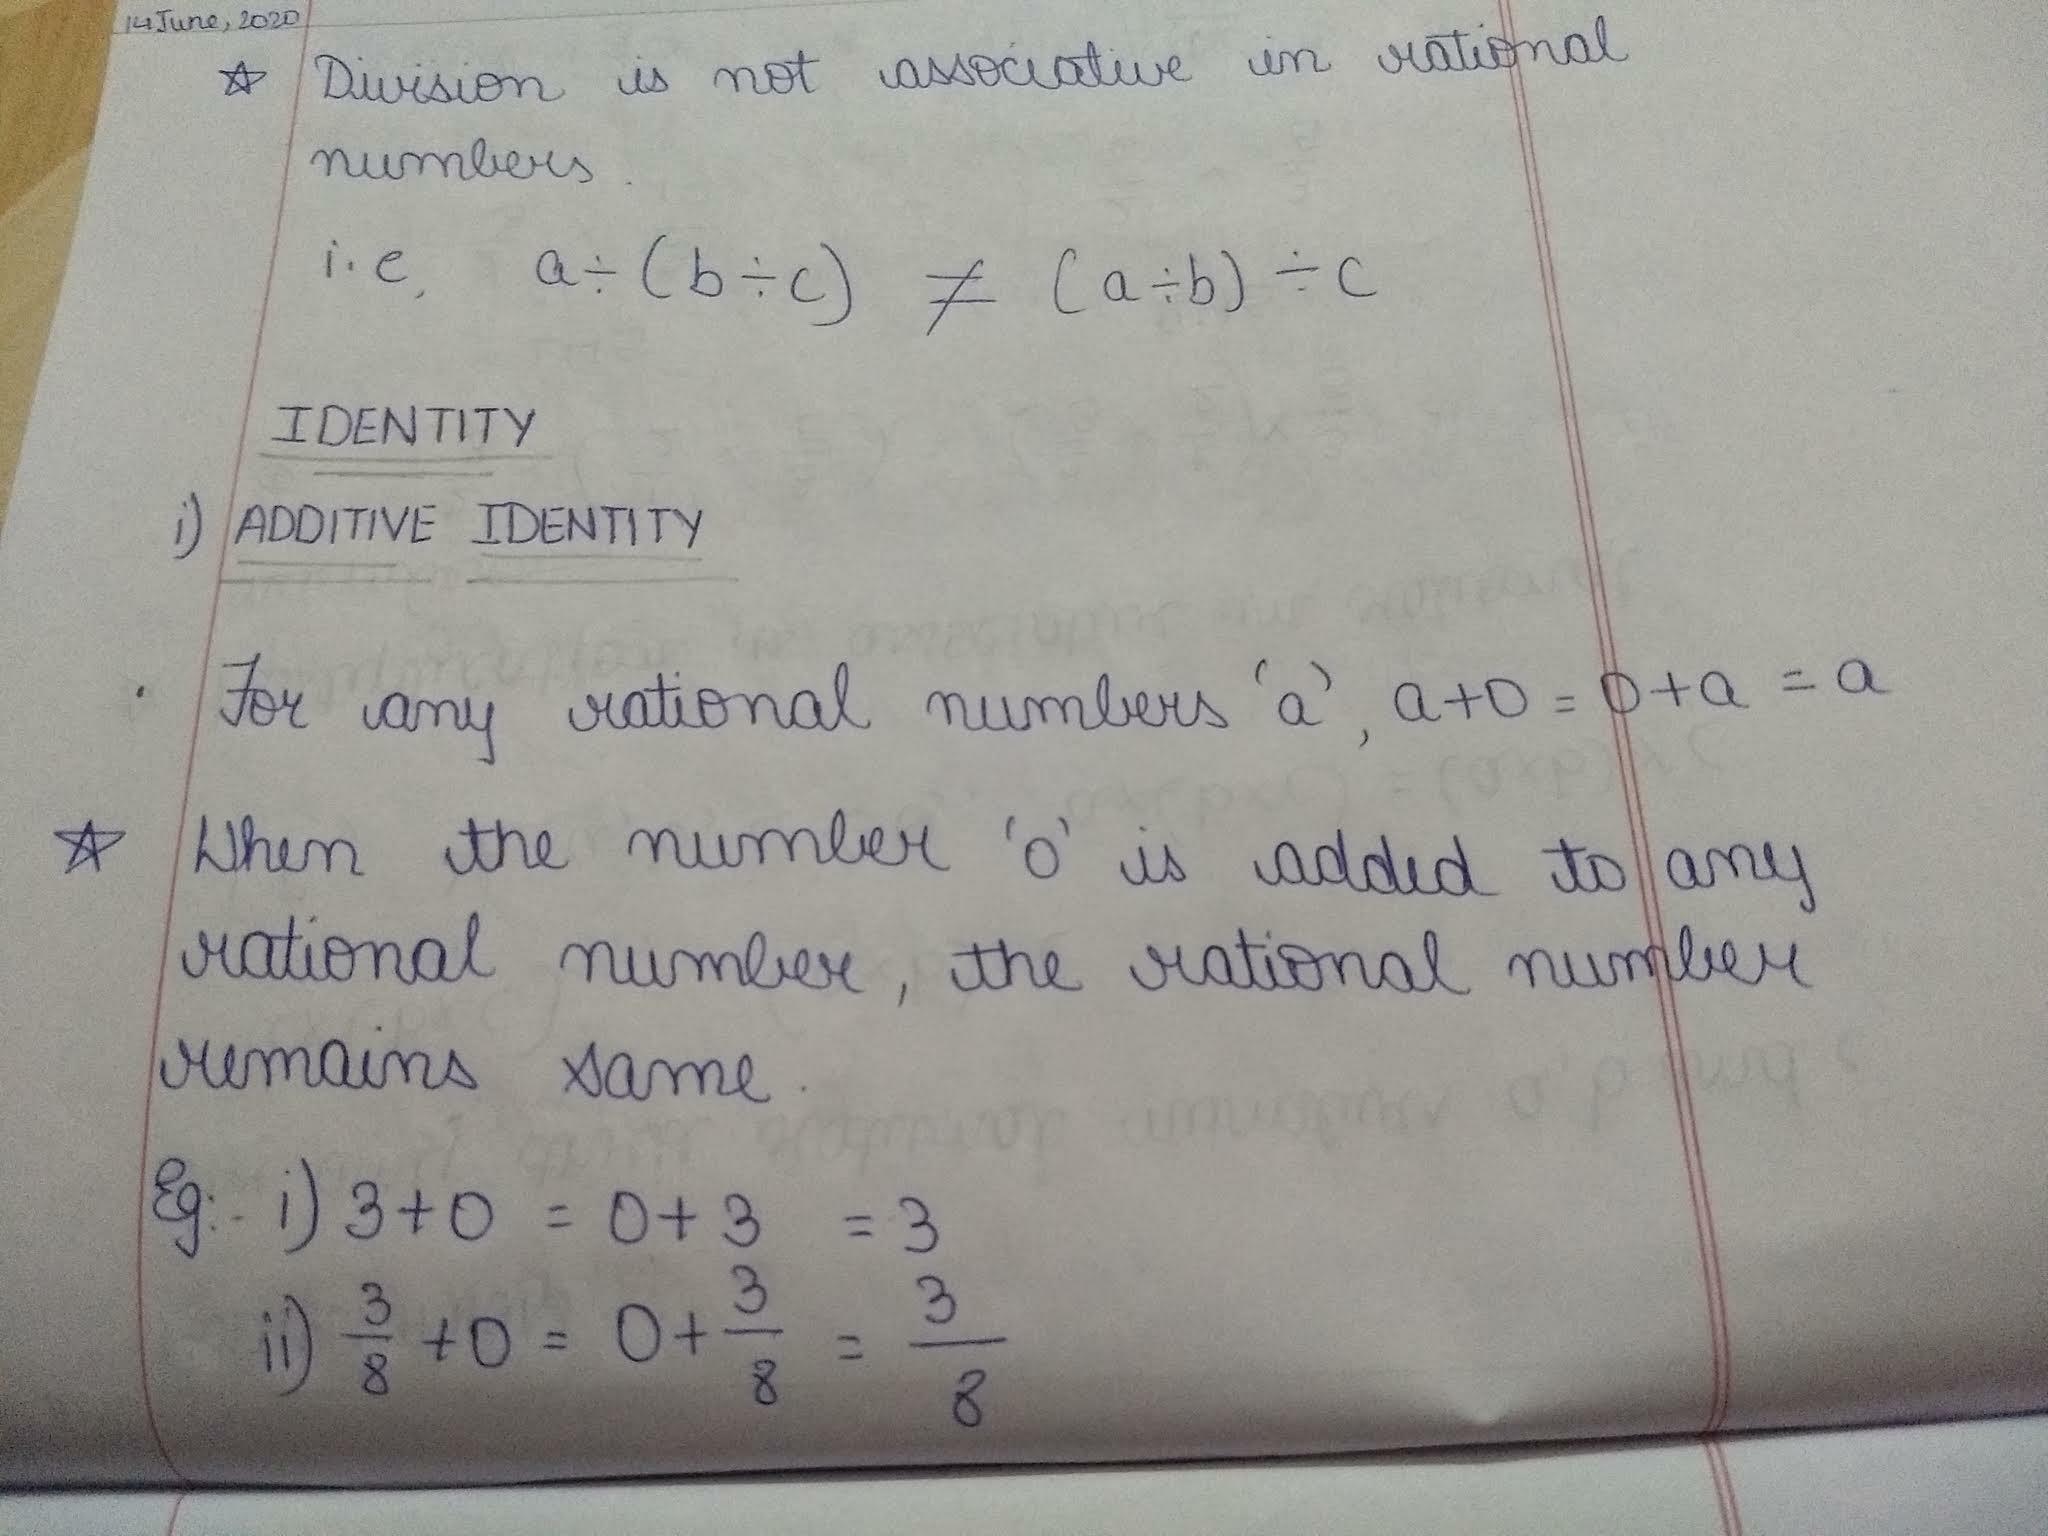 14 June, 2020
☆ Division is not associative in rational
numbers.
i.e, a÷(b÷c) ≠ (a÷b)÷c
IDENTITY
i) ADDITIVE IDENTITY
· For any rational numbers 'a', a+0=0+a=a
☆ When the number '0' is added to any
rational number, the rational number
remains same.
Eg:- i) 3+0 = 0+3 = 3
ii) 3/8 +0 = 0+ 3/8 = 3/8